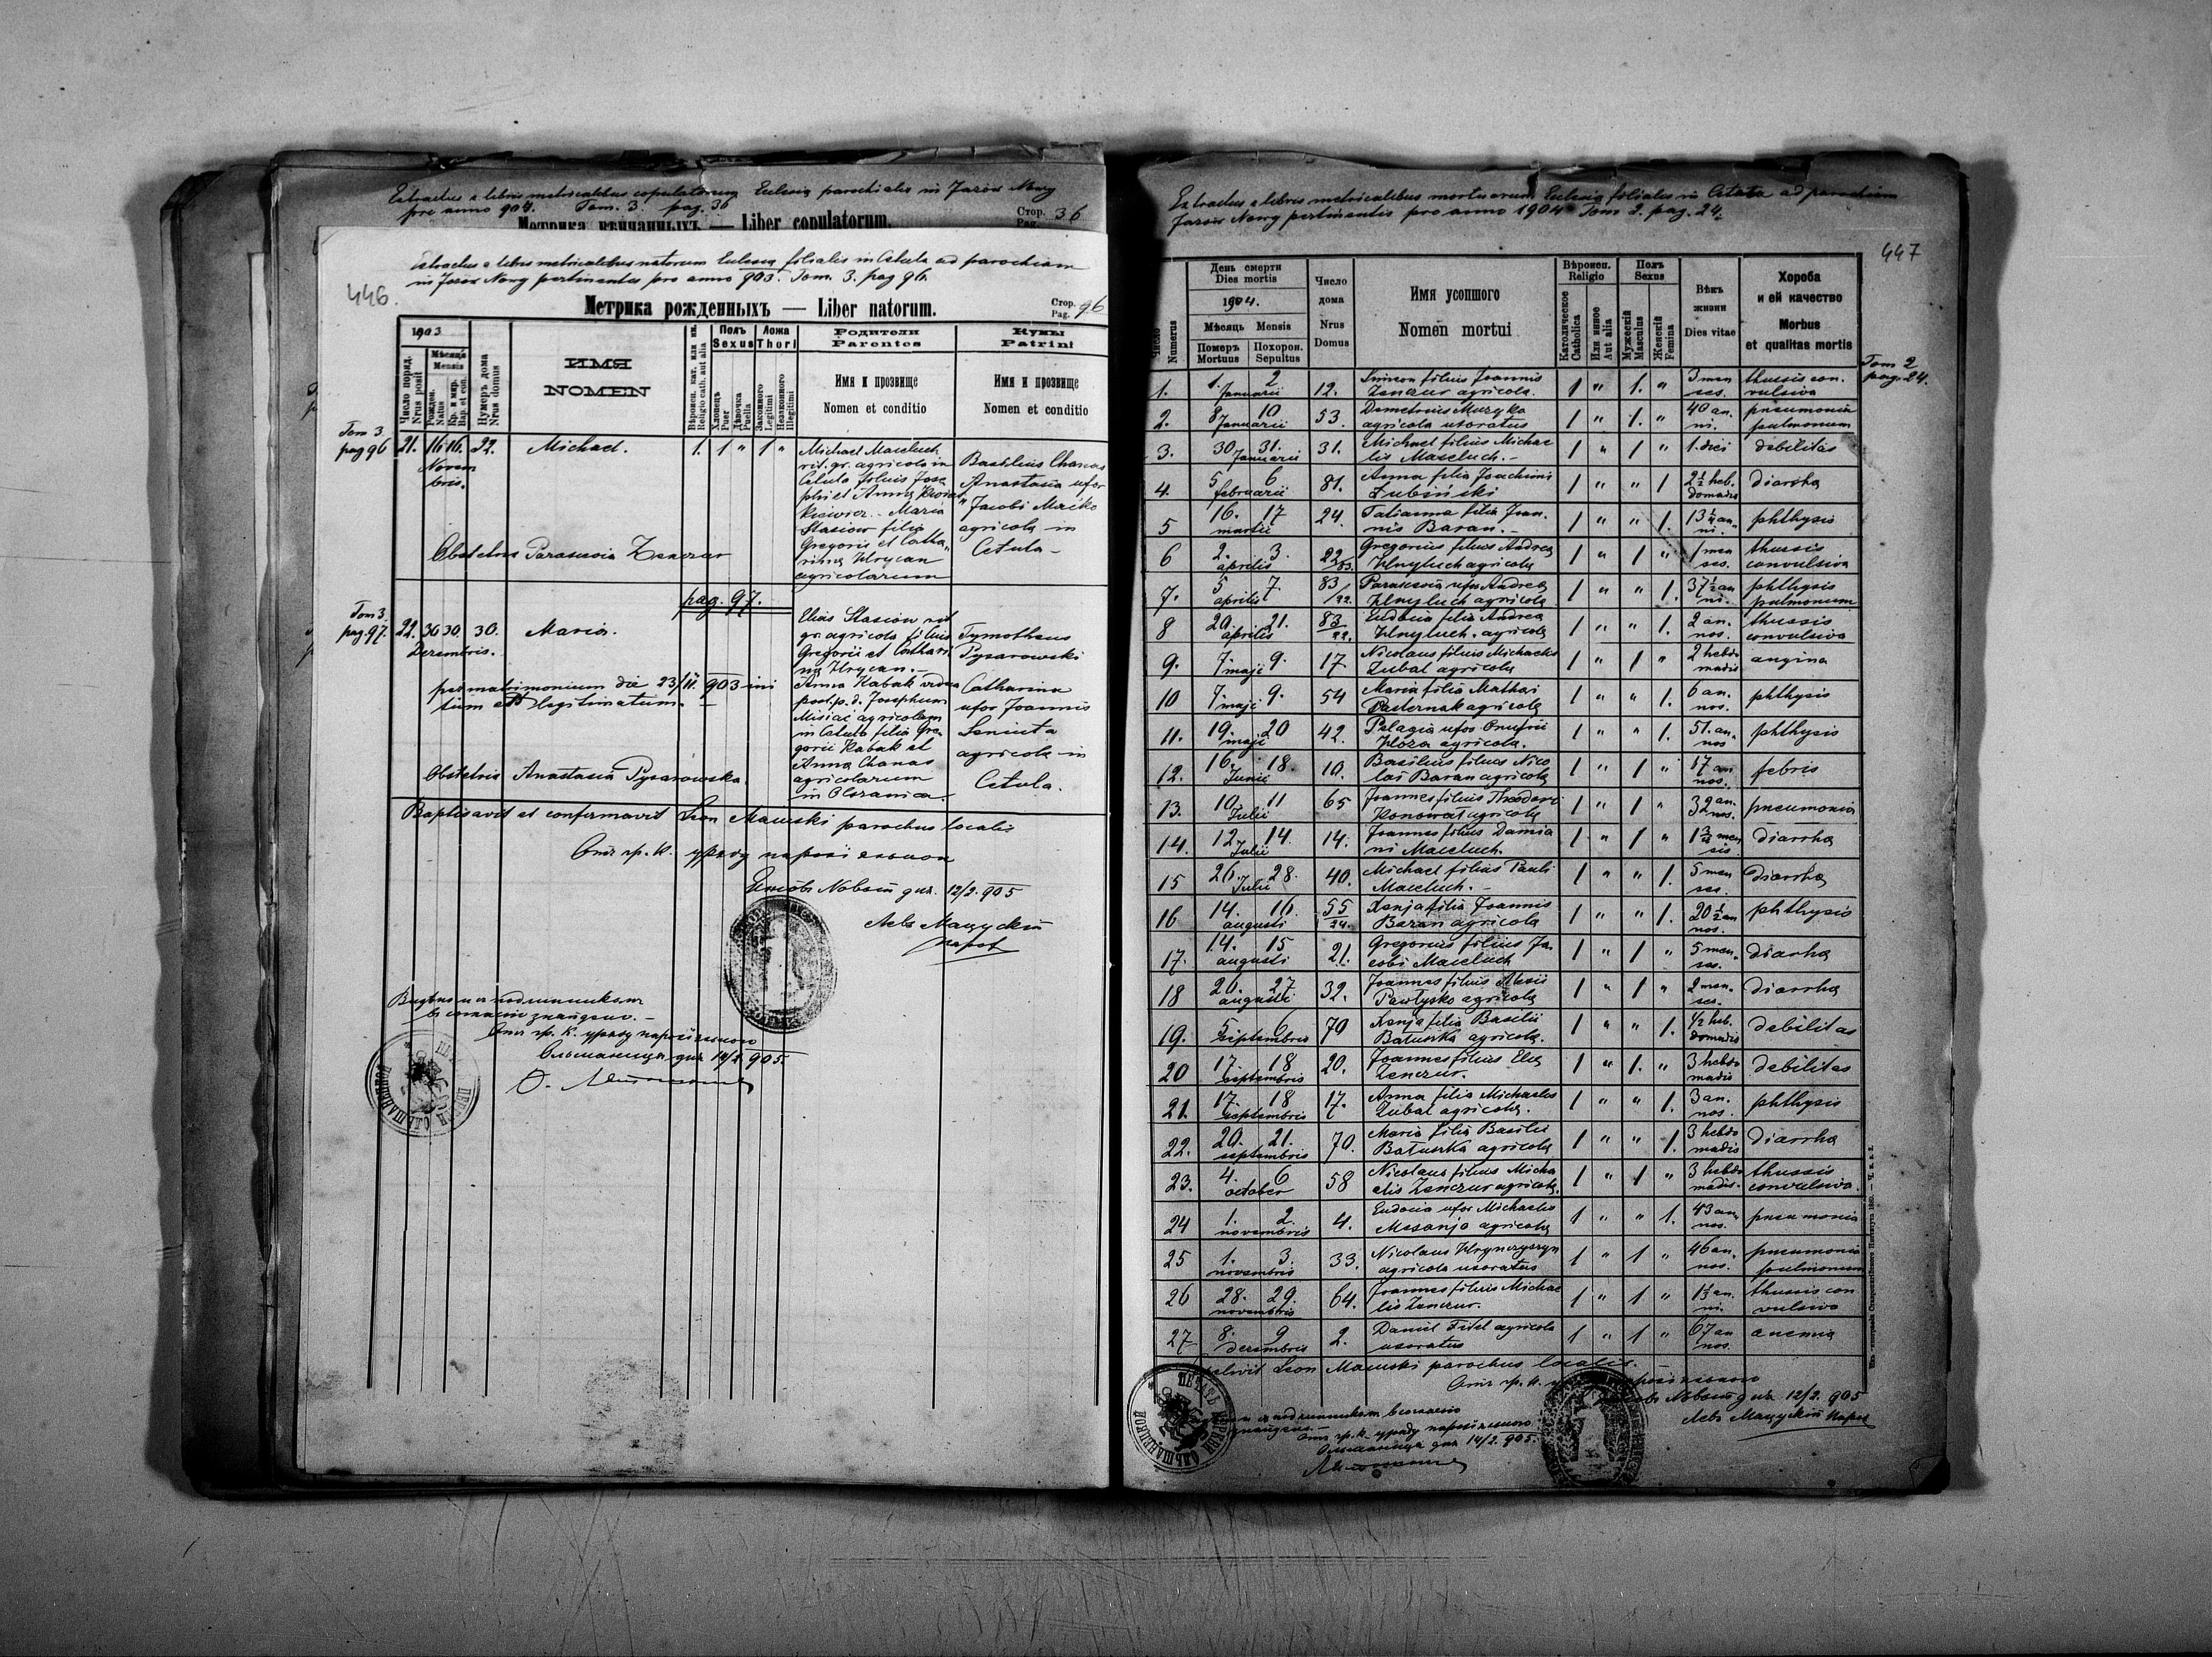 Extractus e libris metricalibus copulatorum Ecclesia parochialis in Jazów Nowy
pro anno 904. Tom. 3. pag. 36
Метрика вѣнчанныхъ — Liber copulatorum.
Стор. 36
Pag.
Extractus e libris metricalibus natorum Ecclesia filialis in Cetula ad parochiam
in Jazów Nowy pertinentis pro anno 903. Tom. 3. pag 96.
446.
Метрика рожденныхъ — Liber natorum.
Стор.
Pag. 96
1903
Число поряд.
Nrus posit
Мѣсяць
Mensis
Рожден.
Natus
Кр. и мир.
Bap. et con.
Нумеръ дома
Nrus domus
ИМЯ
NOMEN
Вѣроиси. кат. или ин.
Religio cath. aut alia
Полъ
Sexus
Хлопець
Puer
Дѣвочка
Puella
Ложа
Thori
Законного
Legitimi
Незаконного
Illegitimi
Родители
Parentes
Имя и прозвище
Nomen et conditio
Кумы
Patrini
Имя и прозвище
Nomen et conditio
Tom 3.
pag 96
21. 16 16. 22. Michael. 1. 1 " 1 "
Novem
bris.
Michael Maceluch
rit. gr. agricola in
Cetula filius Jose
phi et Anna
Maria
Stasiow filia
Gregorii et Catha
rina Hrycan
agricolarum
Basilius Chanas
Anastasia uxor
Jacobi
agricola in
Cetula -
Obstetrix Parascevia Zenczur
pag. 97.
Tom 3.
pag. 97.
22. 30 30. 30. Maria.
Dezembris.
Elias Stasiow rit
gr. agricola filius
Gregorii et Cathari
na Hrycan. -
Anna Kabak vidua
post p. d. Josephum
Misiac agricolam
in Cetula filia Gre
gorii Kabak et
Anna Chanas
agricolarum
in Olszanica.
Tymotheus
Pysarowski
Catharina
uxor Joannis
Seniuta
agricola in
Cetula.
per matrimonium die 23/II. 903 ini
tum est legitimatum.
Obstetrix Anastasia Pysarowska.
Baptisavit et confirmavit Leon Macuski parochus localis
Отъ гр. к. уряду парохіяльного
12/2. 905
Левъ Мацускій
парох
Видѣно и съ подлинникомъ
въ согласію знайдено. -
Отъ гр. к. уряду парохіяльного
Ольшаница дня 14/2. 905.
Extractus e libris metricalibus mortuorum Ecclesia filialis in Cetula ad parochiam
Jazów Nowy pertinentis pro anno 1904 Tom 2. pag. 24.
447
Число
Numerus
День смерти
Dies mortis
1904.
Мѣсяць Mensis
Померъ
Mortuus
Похорон.
Sepultus
Число
дома
Nrus
Domus
Имя усопшого
Nomen mortui
Вѣроисп.
Religio
Католическое
Catholica
Или иное
Aut alia
Полъ
Sexus
Мужескій
Masculus
Женскій
Femina
Вѣкъ
жизни
Dies vitae
Хороба
и ей качество
Morbus
et qualitas mortis
Tom 2
pag. 24.
1. 1. 2 Januarii 12. Simeon filius Joannis Zenczur agricola. 1 " 1. " 3 men ses. thussis con. vulsiva
2. 8 10 Januarii 53. Demetrius Muzyka agricola uxoratus 1 " 1. " 40 an. ni. pneumonia pulmonum
3. 30 31. Januarii 31. Michael filius Michae lis Maceluch. - 1 " 1 " 1. diei debilitas
4. 5 6 februarii 81. Anna filia Joachimi Łubiński 1 " " 1 2½ heb. domadis diarrha
5 16. 17 martii 24. Tatianna filia Joan. nis Baran. - 1 " " 1. 13½ an. ni. phthysis
6 2. 3. aprilis 22/83. Gregorius filius Andrea Hnyluch agricola 1 " 1 " 1 men ses. thussis convulsiva
7. 5 7. aprilis 83/22. Parascevia uxor Andrea Hnyluch agricola 1 " " 1. 37½ an ni. phthysis pulmonum
8 20. 21. aprilis 83/22. Eudocia filia Andrea Hnyluch. agricola 1 " " 1. 2 an. nos. thussis convulsiva
9. 7 9. maji 17 Nicolaus filius Michaelis Zubal agricola 1 " 1 " 2 hebdo madis angina
10 7 9. maji 54 Maria filia Mathai Pasternak agricola 1 " " 1. 6 an. nos. phthysis
11. 19. 20 maji 42. Pelagia uxor Onufrii Hloza agricola. 1 " " 1. 51. an. nos phthysis
12. 16. 18. Junii 10. Basilius filius Nico lai Baran agricola 1 " 1 " 17 an nos. febris
13. 10 11 Julii 65 Joannes filius Theodori Konowal agricola 1 " 1 " 32 an. nos. pneumonia
14. 12 14. Julii 14. Joannes filius Damia ni Maceluch. 1 " 1 " men sis. diarrha
15 26. 28. Julii 40. Michael filius Pauli Maceluch. - 1 " " 1. 5 men ses. diarrha
16 14. 16. augusti 55/24. Xenja filia Joannis Baran agricola 1 " " 1. 20½ an nos. phthysis
17. 14. 15 augusti 21. Gregorius filius Ja. cobi Maceluch 1 " 1 " 5 men. ses. diarha
18 26. 27 augusti 32. Joannes filius Alexii Pawłysko agricola 1 " 1 " 2 men. ses. diarrha
19. 5 6 septembris 70 Xenja filia Basilii Batuszka agricola. 1 " " 1. ½ heb. domadis debilitas
20 17. 18 septembris 20. Joannes filius Elia Zenczur. 1 " 1. " 3 hebdo madis debilitas
21. 17. 18 septembris 17. Anna filia Michaelis Zubal agricola. 1 " " 1. 3 an. nos. phthysis
22. 20. 21. septembris 70. Maria filia Basilii Batuszka agricola 1 " " 1. 3 hebdo madis diarrha
23. 4. 6 october 58 Nicolaus filius Micha elis Zenczur agricola. 1 " 1 " 3 hebdo madis. thussis convulsiva.
24 1. 2. novembris 4. Eudocia uxor Michaelis Mszanja agricola 1 " " 1. 43 an nos. pneumonia
25 1. 3. novembris 33. Nicolaus Hrynczyszyn agricola uxoratus 1 " 1 " 46 an. nos. pneumonia pulmonum
26 28. 29. novembris 64. Joannes filius Michae lis Zenczur. 1 " 1 " 1½ an. ni. thussis con vulsiva
27 8. 9 dezembris 2. Daniel Fidel agricola uxoratus 1 " 1 " 67 an nos. anemia
Leon Macuski parochus localis. -
Отъ гр. к.
12/2. 905
Левъ Мацускій парох
съ подлинникомъ въ согласію
знайдено. -
Отъ гр. к. уряду парохіяльного
Ольшаница дня 14/2. 905.